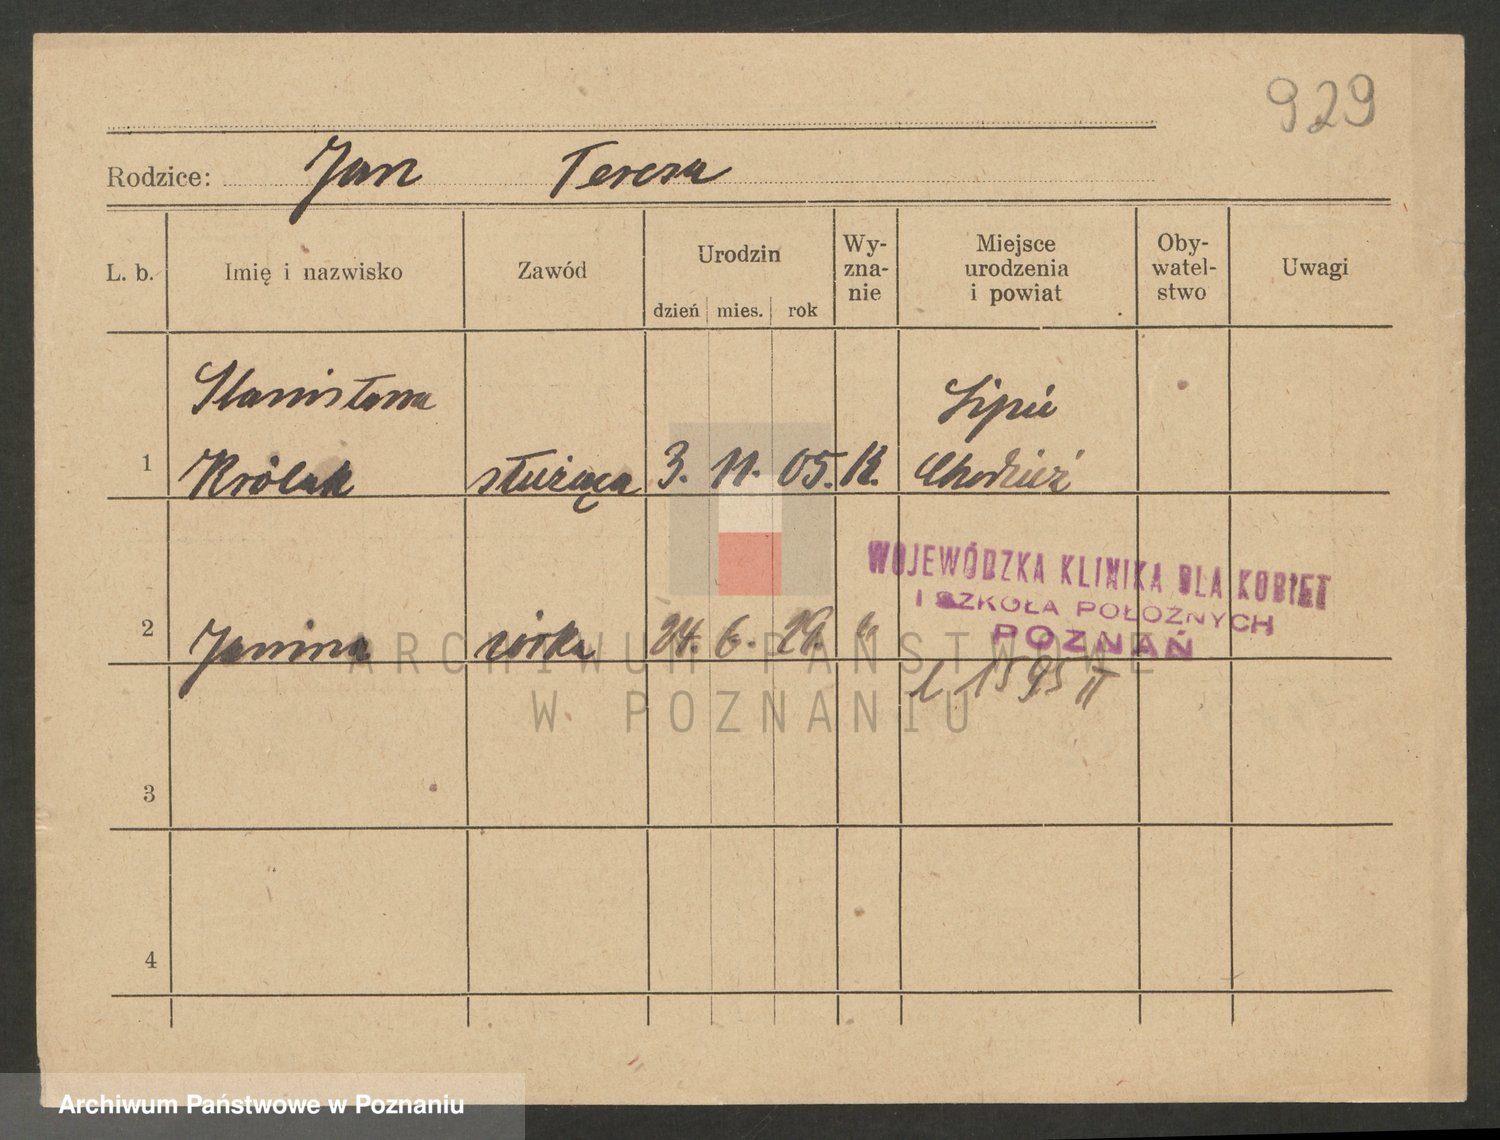 929
Rodzice: Jan Teresa
L. b. Imię i nazwisko Zawód Urodzin dzień mies. rok Wy-zna-nie Miejsce urodzenia i powiat Oby-watel-stwo Uwagi
Stanisława Lipie
1 Królak służąca 3. 11. 05. K. Chodzież
WOJEWÓDZKA KLINIKA DLA KOBIET
I SZKOŁA POŁOŻNYCH
POZNAŃ
2 Janina córka 24. 6. 29. "
l 1595 II
3
4
ARCHIWUM PAŃSTWOWE
W POZNANIU
Archiwum Państwowe w Poznaniu